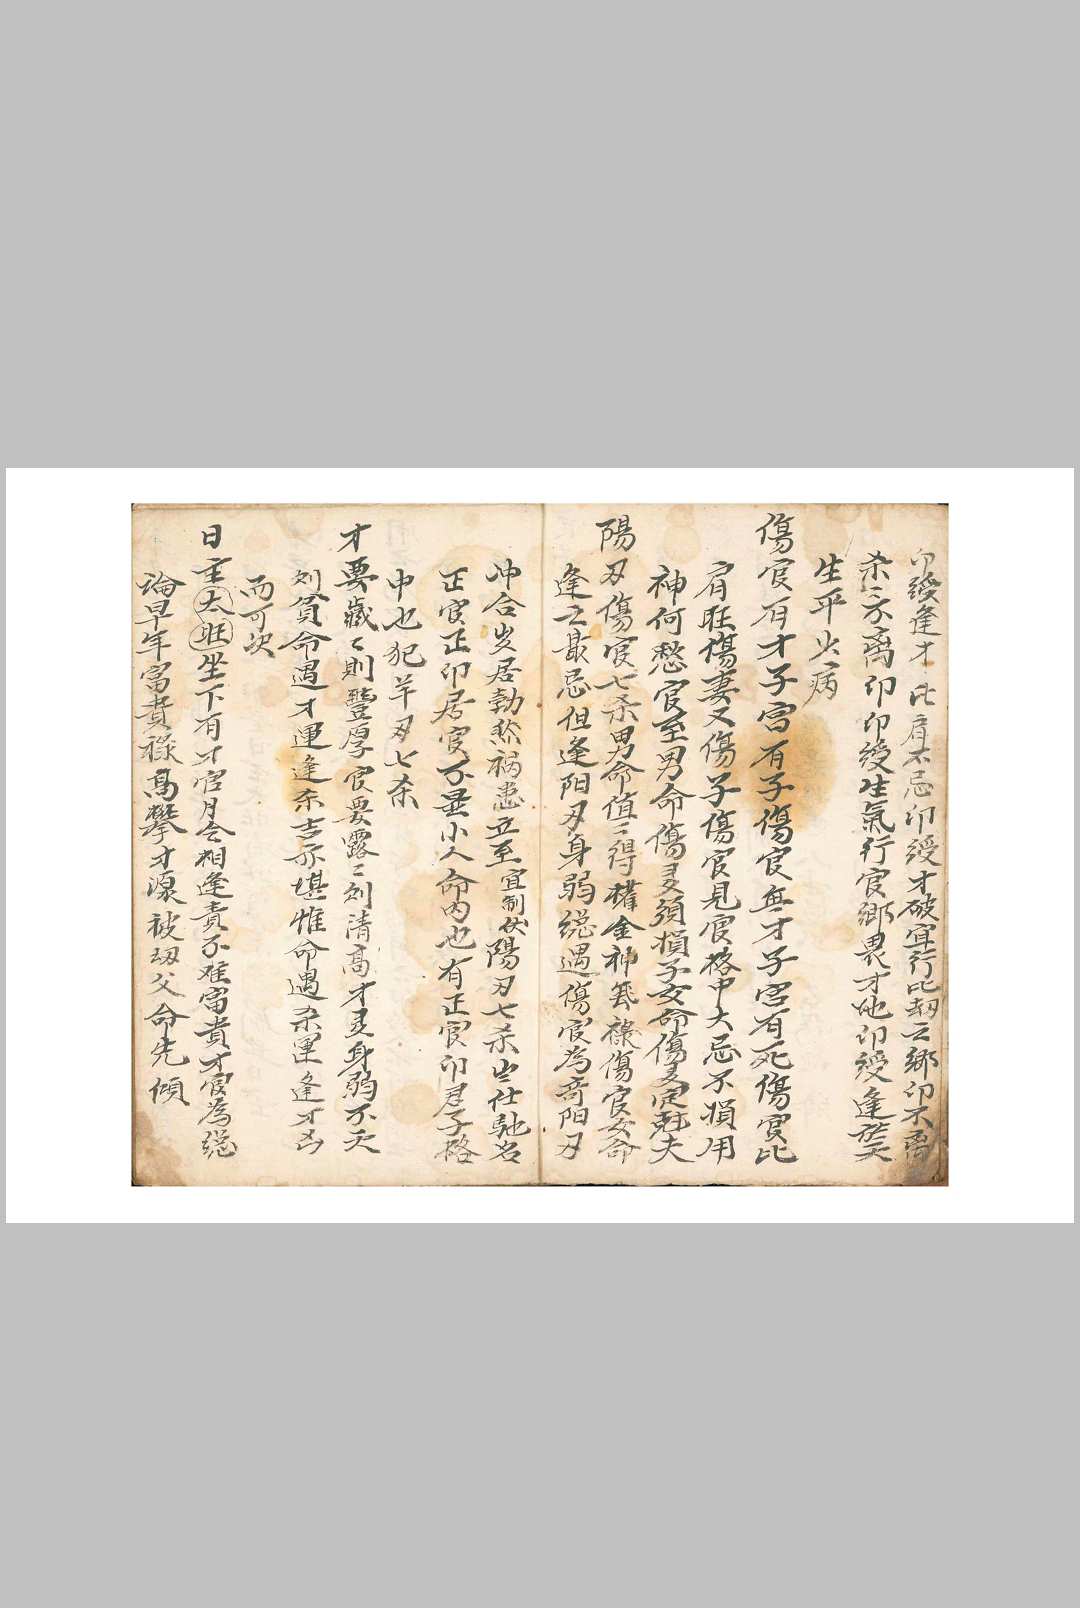 印綬逢才比肩不忌印綬才破宜行比刼之鄉印不离
杀杀不离印印綬生氣行官鄉畏才地印綬逢煞
生平少病
傷官有才子宮有子傷官無才子宮有死傷官比
肩旺傷妻又傷子傷官見官格中大忌不損用
神何愁官至男命傷多須損子女命傷多定尅夫
陽刃傷官七杀男命值〻得權金神無祿傷官女命
逢之最忌但逢阳刃身弱總遇傷官為奇阳刃
冲合岁居勃然祸患立至宜制伏陽刃七杀出仕馳名
正官正印居官不䡖小人命內也有正官印君子格
中也犯羊刃七杀
才要藏〻則豐厚官要露〻則清高才多身弱不夭
则貧命遇才運逢杀吉亦堪惟命遇杀運逢才凶
而可决
日主太旺坐下有才官月令相逢貴不难富貴才官為總
論早年富貴祿高攀才源被刼父命先傾